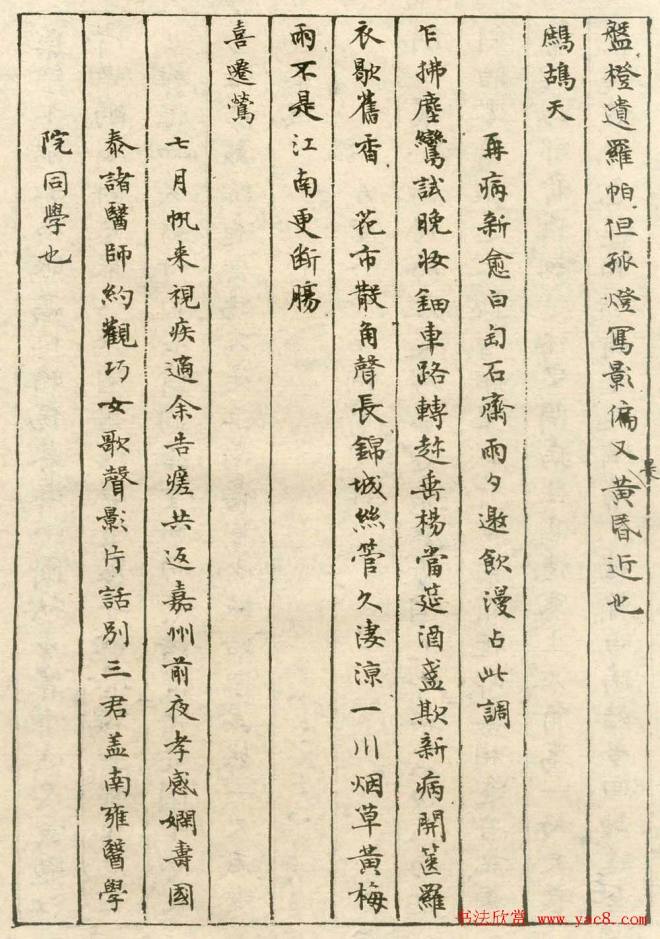 盤橙遺羅帕但孤燈寫影偏又黃昏近也
鷓鴣天
再病新愈白匋石齋雨夕邀飲漫占此調
乍拂塵鸞試晚妝鈿車路轉趂垂楊當莚酒盞欺新病開篋羅
衣歇舊香 花市散角聲長錦城絲管久淒涼一川烟草黃梅
雨不是江南更斷腸
喜遷鶯
七月帆来視疾適余告瘥共返嘉州前夜孝感嫻壽國
泰諸醫師約觀巧女歌聲影片話別三君蓋南雍醫學
院同學也
书法欣赏 www.yac8.com